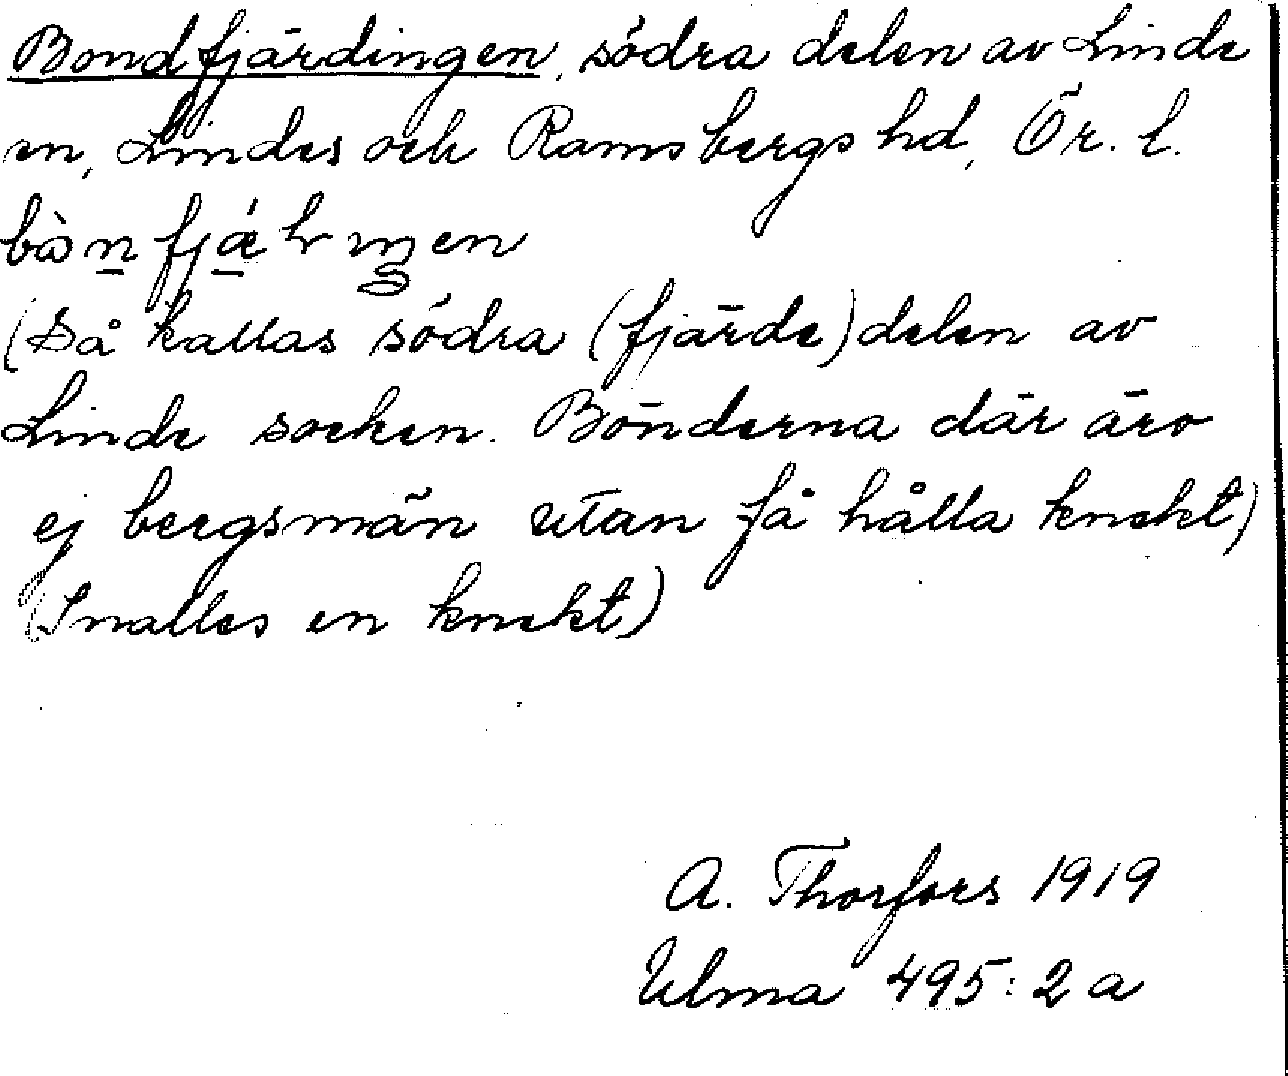 Bondfjärdingen, södra delen av Linde
sn, Lindes och Ramsbergs hd, Ör. l.
(Så kallas södra (fjärde)delen av
Linde socken. Bönderna där äro
ej bergsmän utan få hålla knekt)
(Inalles en knekt)
A. Thorfors 1919
Ulma 495:2a